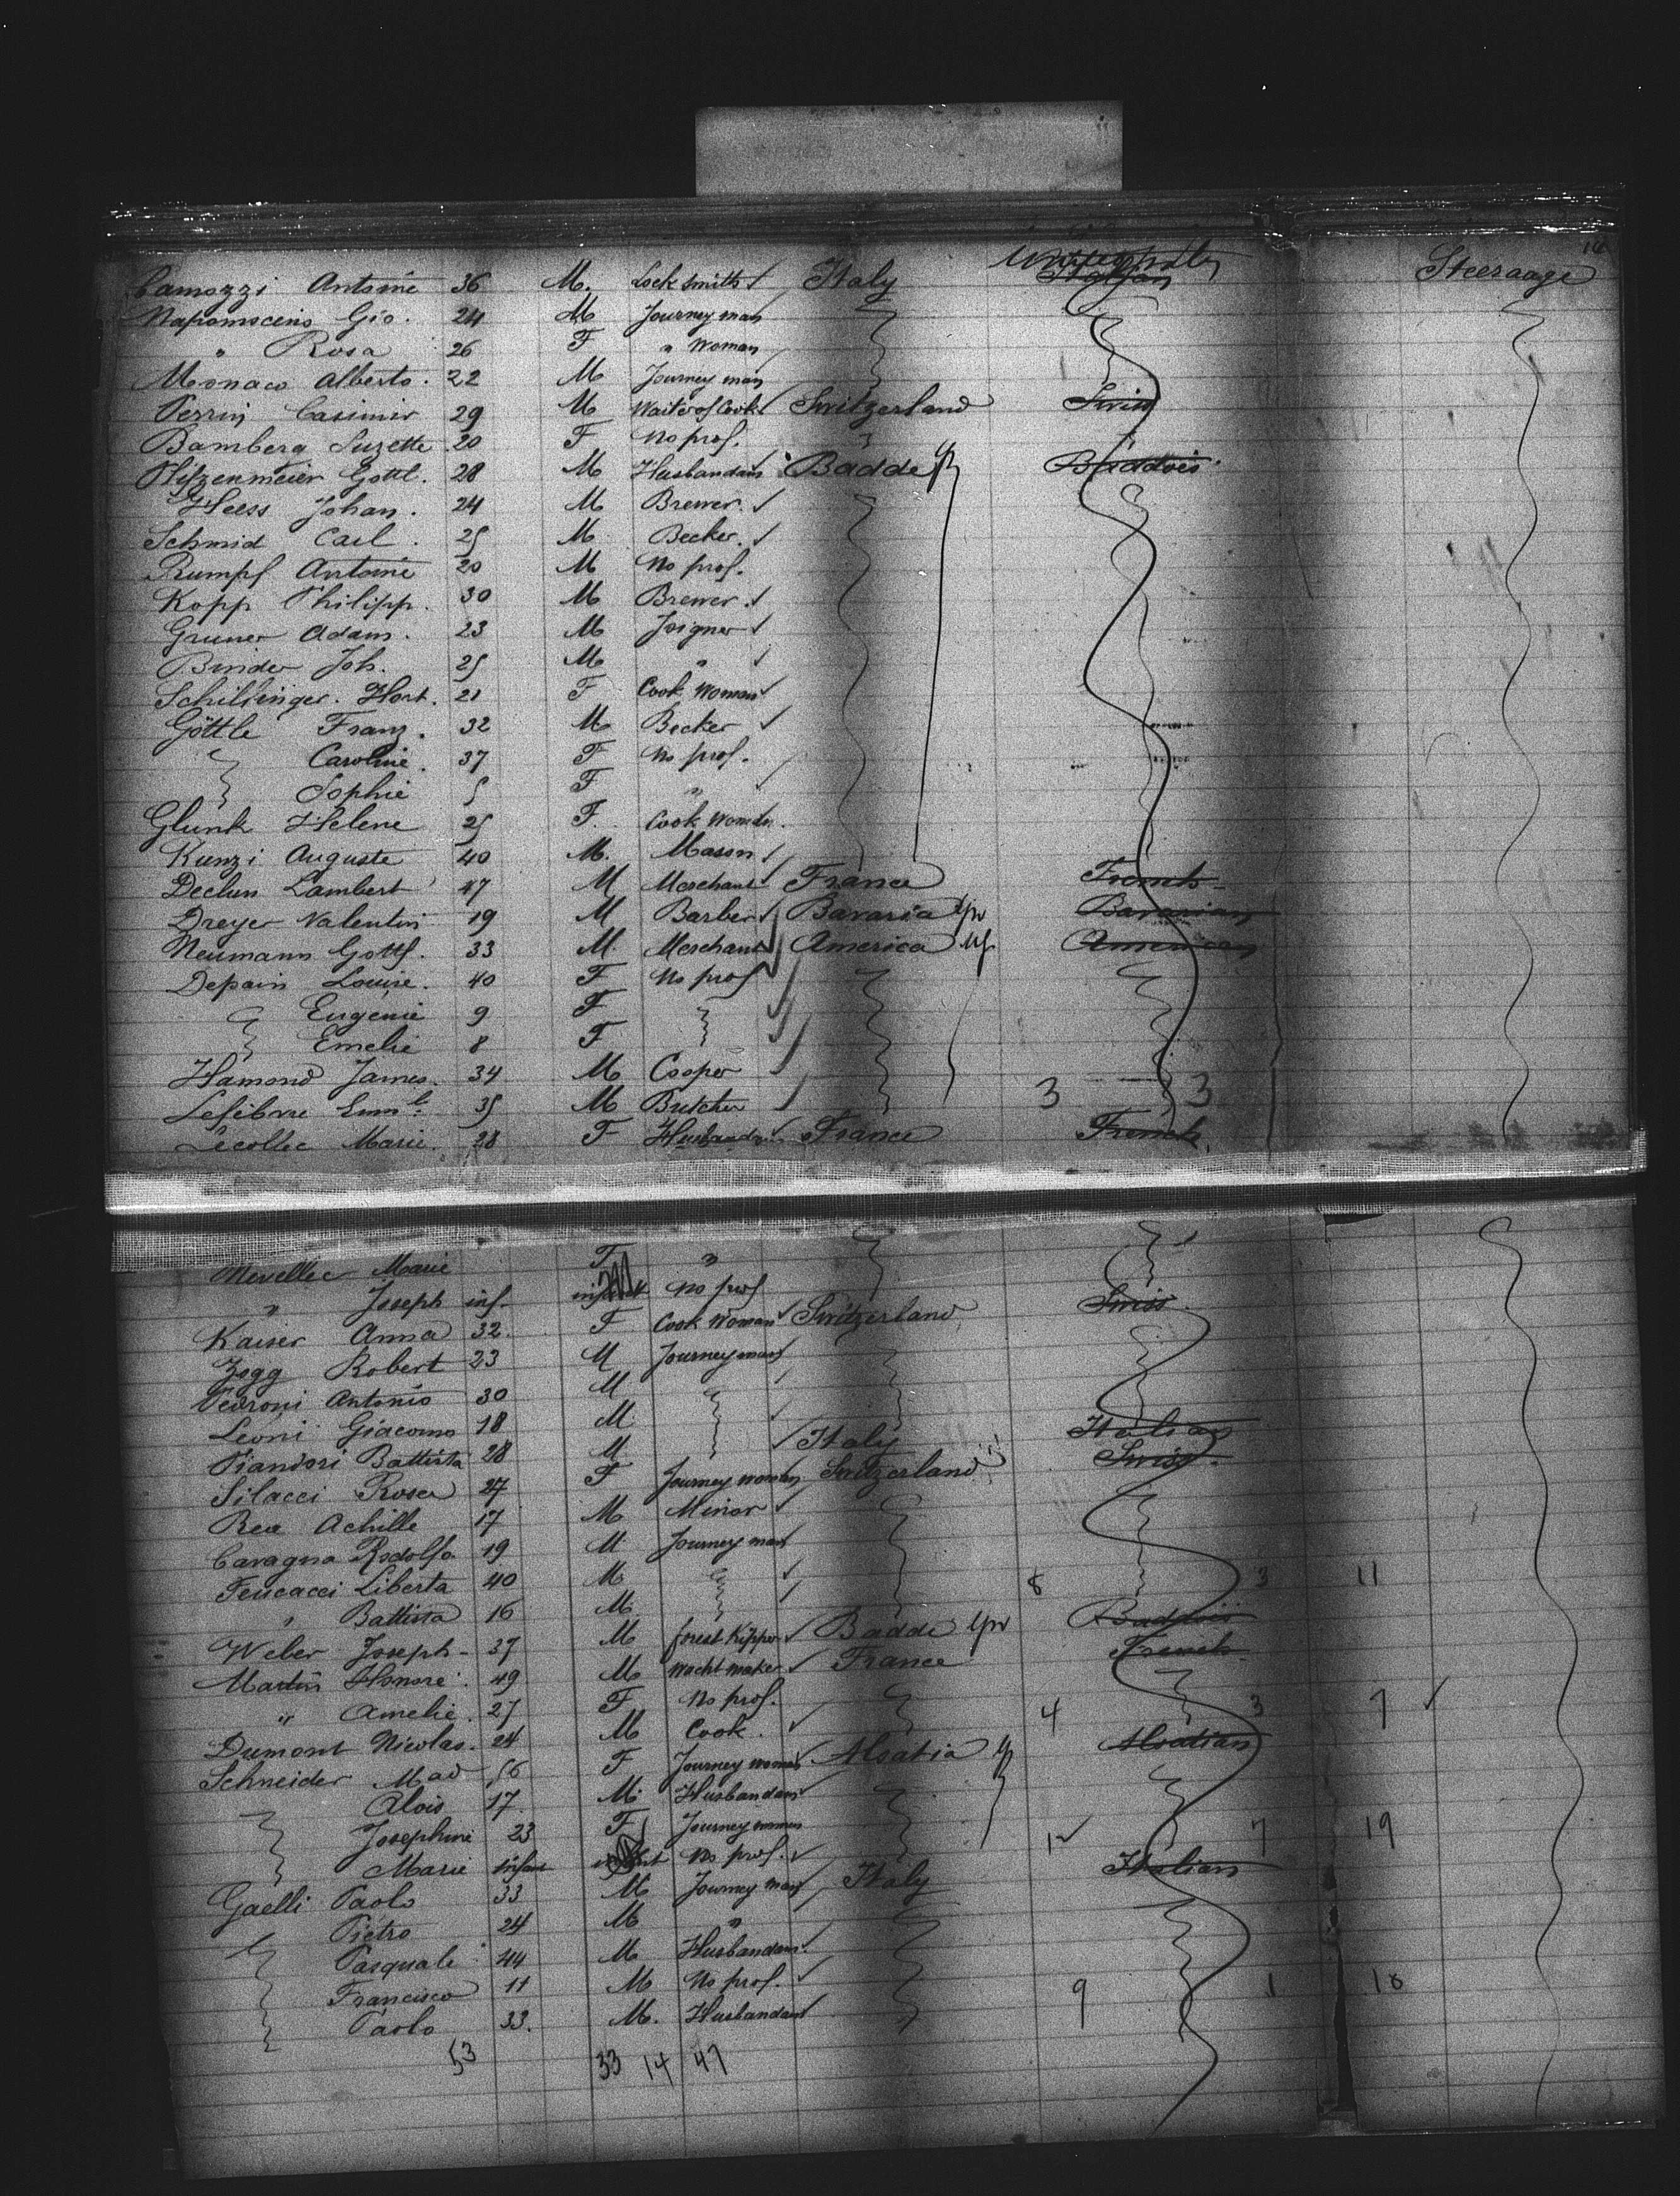 14
Camozzi Antoine 36 M. Lock smith Italy Italian Steeraage
Napomoceno Gio. 24 M Journey man
" Rosa 26 F " Woman
Monaco Alberto. 22 M Journey man
Perrin Casimir 29 M Waiter of Cook Switzerland Swiss
Bamberg Suzette 20 F No prof.
Hitzenmeier Gottl. 28 M Husbandam Badde Baddois
Heess Johan. 24 M Brewer.
Schmid Carl. 25 M Becker.
Rumpf Antoine 20 M No prof.
Kopp Philipp. 30 M Brewer.
Gruner Adam. 23 M Joigner
Binder Joh. 25 M "
Schillinger. Hort. 21 F Cook Woman
Göttle Franz. 32 M Becker
Caroline. 37 F No prof.
Sophie 5 F "
Glunk Helene 25 F. Cook Woman.
Kunzi Auguste 40 M. Mason
Declun Lambert 47 M Merchant France French
Dreyer Valentin 19 M Barber Bavaria Bavarian
Neumann Gottf. 33 M. Merchant America American
Depain Louise. 40 F No prof
Eugenie 9 F
Emelie 8 F
Hamond James. 34 M Cooper 3 3
Lefèbvre Eml. 35 M Butcher
Lecollec Marie. 28 F France French.
Nevellec Marie F "
" Joseph inf. infant No prof
Kaiser Anna 32. F Cook Woman Switzerland Swiss.
Zogg Robert 23 M Journey man
Pedroni Antonio 30 M
Leoni Giacomo 18 M.
Piandori Battista 28 M Italy Italian
Silacci Rosa 27 F Journey woman Switzerland Swiss.
Rea Achille 17 M Minor
Cavagna Rodolfo 19 M Journey man
Feucacci Liberta 40 M 8 3 11
" Battista 16 M
Weber Joseph- 37 M forest Kipper Badde Baddois
Martin Honoré. 49 M Wacht maker France French
" Amelie. 25 F No prof.
Dumont Nicolas. 24 M Cook. 4 3 7
Schneider Mad 56 F Journey woman Alsatia Alsatian
Alois 17. M. Husbandam
Josephine 23 F Journey woman 12 7 19
Marie infant infant No prof.
Gaelli Paolo 33 M Journey man Italy Italian
Pietro 24 M "
Pasquale 44 M Husbandam.
Francisco 11 M No prof. 9 1 10
Paolo 33. M. Husbandam
53 33 14 47